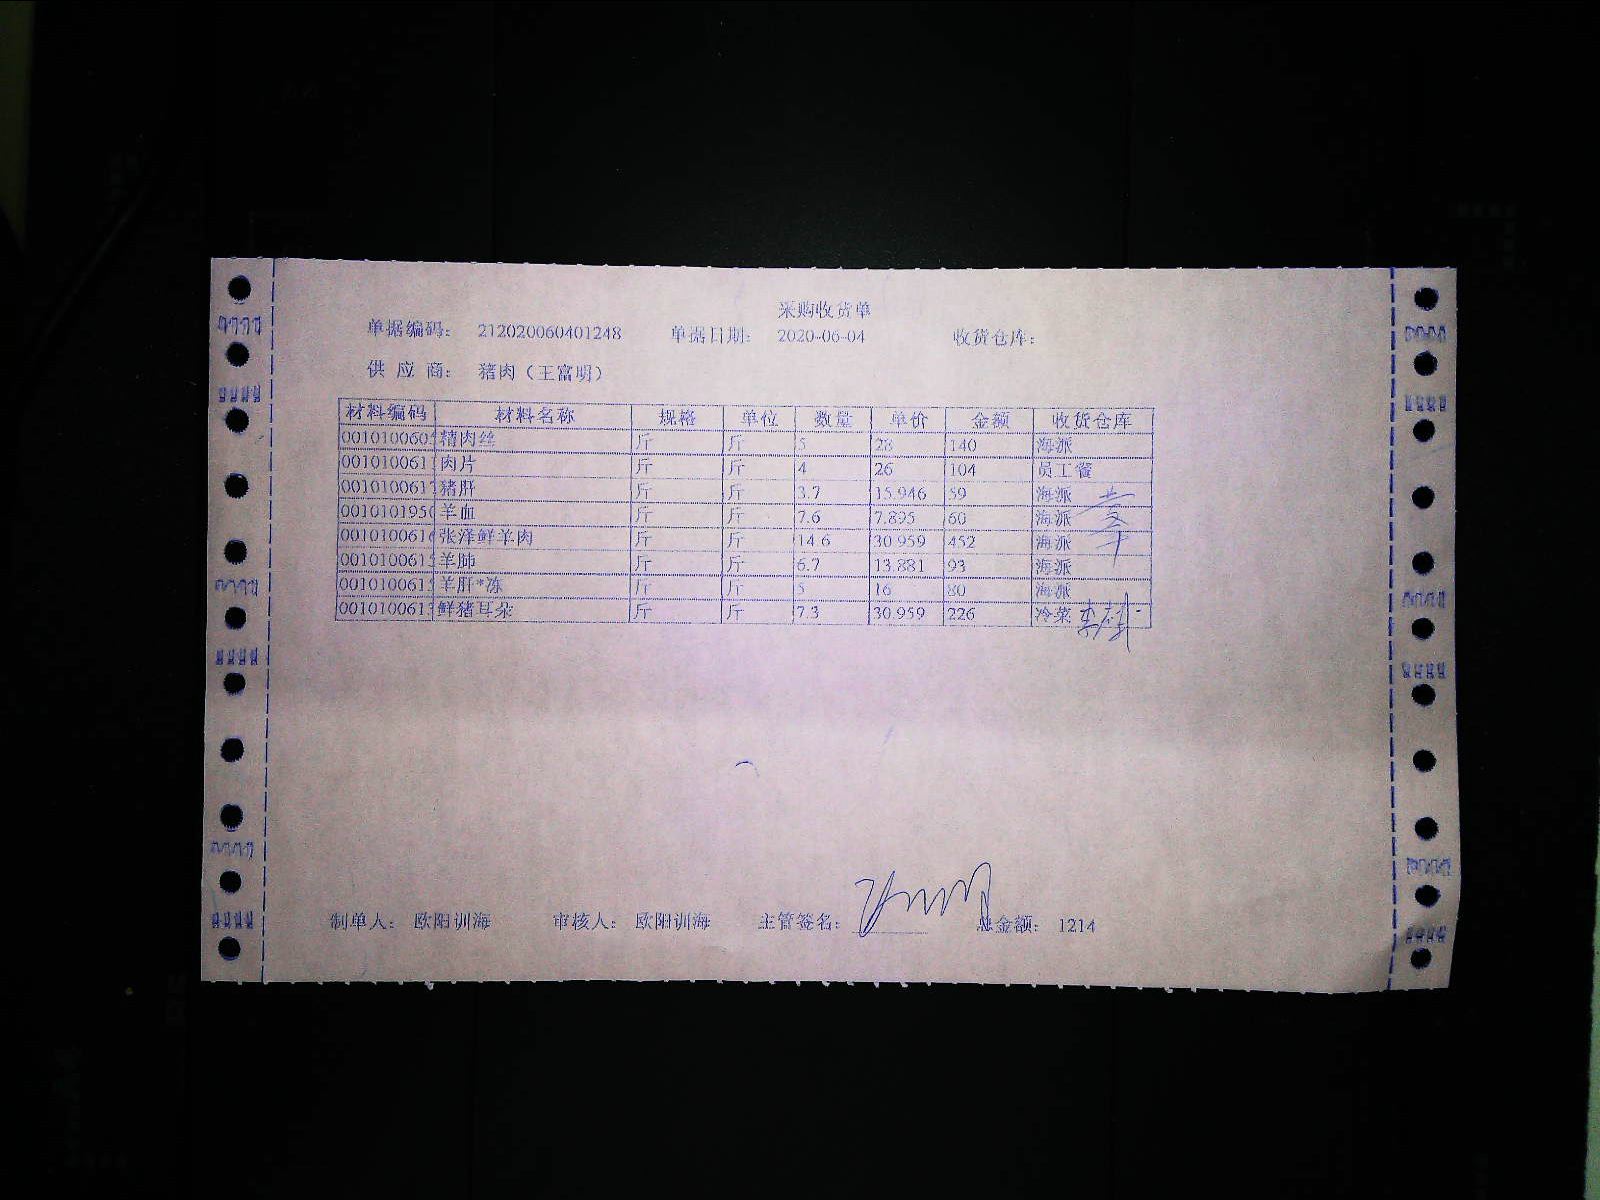 采购收货单
单据编码： 212020060401248 单据日期： 2020-06-04 收货仓库：
供 应 商： 猪肉（王富明）
材料编码 材料名称 规格 单位 数量 单价 金额 收货仓库
0010100605 精肉丝 斤 斤 5 28 140 海派
001010061 肉片 斤 斤 4 26 104 员工餐
001010061 猪肝 斤 斤 3.7 15.946 59 海派
001010195 羊血 斤 斤 7.6 7.895 60 海派
001010061 张泽鲜羊肉 斤 斤 14.6 30.959 452 海派
001010061 羊肺 斤 斤 6.7 13.881 93 海派
001010061 羊肝*冻 斤 斤 5 16 80 海派
001010061 鲜猪耳朵 斤 斤 7.3 30.959 226 冷菜
制单人： 欧阳训海 审核人： 欧阳训海 主管签名： 总金额： 1214